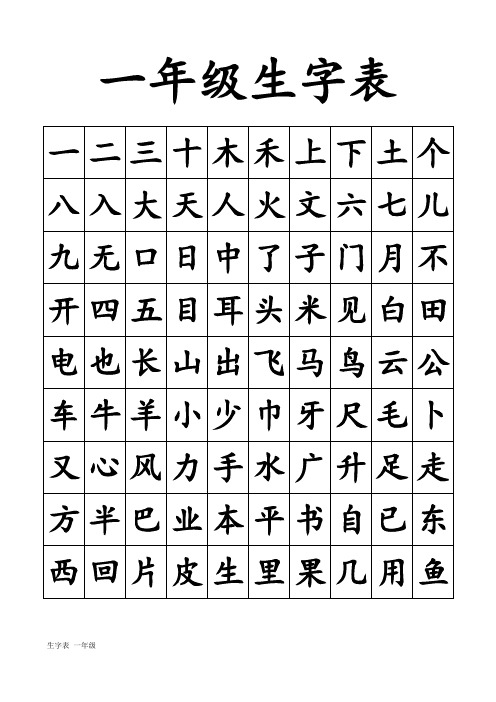 一年级生字表
一 二 三 十 木 禾 上 下 土 个
八 入 大 天 人 火 文 六 七 儿
九 无 口 日 中 了 子 门 月 不
开 四 五 目 耳 头 米 见 白 田
电 也 长 山 出 飞 马 鸟 云 公
车 牛 羊 小 少 巾 牙 尺 毛 卜
又 心 风 力 手 水 广 升 足 走
方 半 巴 业 本 平 书 自 已 东
西 回 片 皮 生 里 果 几 用 鱼
生字表 一年级